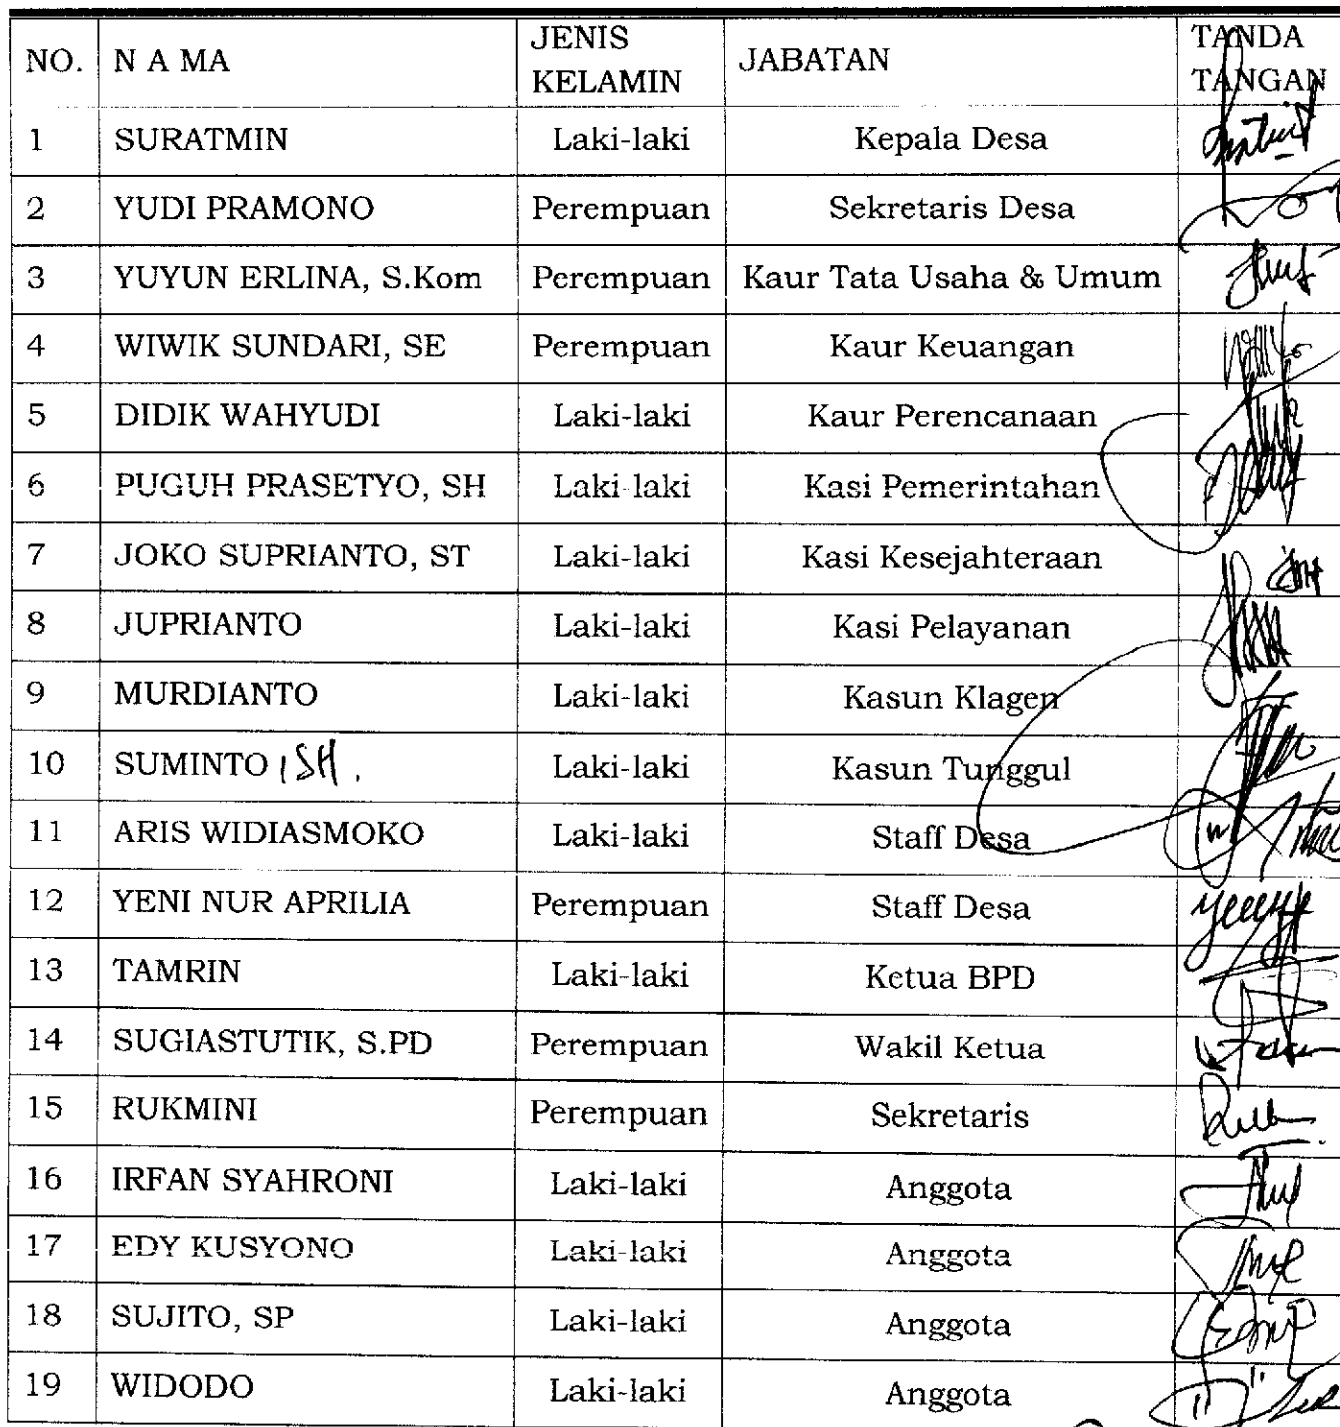 NO. N A MA JENIS KELAMIN JABATAN TANDA TANGAN
1 SURATMIN Laki-laki Kepala Desa
2 YUDI PRAMONO Perempuan Sekretaris Desa
3 YUYUN ERLINA, S.Kom Perempuan Kaur Tata Usaha & Umum
4 WIWIK SUNDARI, SE Perempuan Kaur Keuangan
5 DIDIK WAHYUDI Laki-laki Kaur Perencanaan
6 PUGUH PRASETYO, SH Laki-laki Kasi Pemerintahan
7 JOKO SUPRIANTO, ST Laki-laki Kasi Kesejahteraan
8 JUPRIANTO Laki-laki Kasi Pelayanan
9 MURDIANTO Laki-laki Kasun Klagen
10 SUMINTO, SH. Laki-laki Kasun Tunggul
11 ARIS WIDIASMOKO Laki-laki Staff Desa
12 YENI NUR APRILIA Perempuan Staff Desa
13 TAMRIN Laki-laki Ketua BPD
14 SUGIASTUTIK, S.PD Perempuan Wakil Ketua
15 RUKMINI Perempuan Sekretaris
16 IRFAN SYAHRONI Laki-laki Anggota
17 EDY KUSYONO Laki-laki Anggota
18 SUJITO, SP Laki-laki Anggota
19 WIDODO Laki-laki Anggota